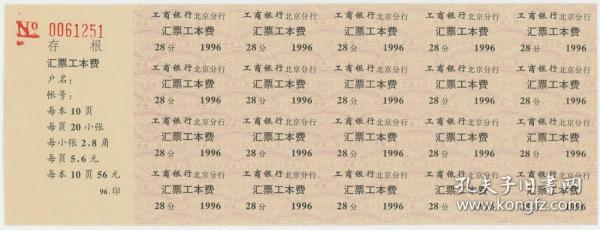 No 0061251
存 根
汇票工本费
户名：
帐号：
每本 10 页
每页 20 小张
每小张 2.8 角
每页 5.6 元
每本 10 页 56 元
96.印
工商银行北京分行 工商银行北京分行 工商银行北京分行 工商银行北京分行 工商银行北京分行
汇票工本费 汇票工本费 汇票工本费 汇票工本费 汇票工本费
28分 1996 28分 1996 28分 1996 28分 1996 28分 1996
工商银行北京分行 工商银行北京分行 工商银行北京分行 工商银行北京分行 工商银行北京分行
汇票工本费 汇票工本费 汇票工本费 汇票工本费 汇票工本费
28分 1996 28分 1996 28分 1996 28分 1996 28分 1996
工商银行北京分行 工商银行北京分行 工商银行北京分行 工商银行北京分行 工商银行北京分行
汇票工本费 汇票工本费 汇票工本费 汇票工本费 汇票工本费
28分 1996 28分 1996 28分 1996 28分 1996 28分 1996
工商银行北京分行 工商银行北京分行 工商银行北京分行 工商银行北京分行 工商银行北京分行
汇票工本费 汇票工本费 汇票工本费 汇票工本费 汇票工本费
28分 1996 28分 1996 28分 1996 28分 1996 28分 1996
孔夫子旧书网
www.kongfz.com